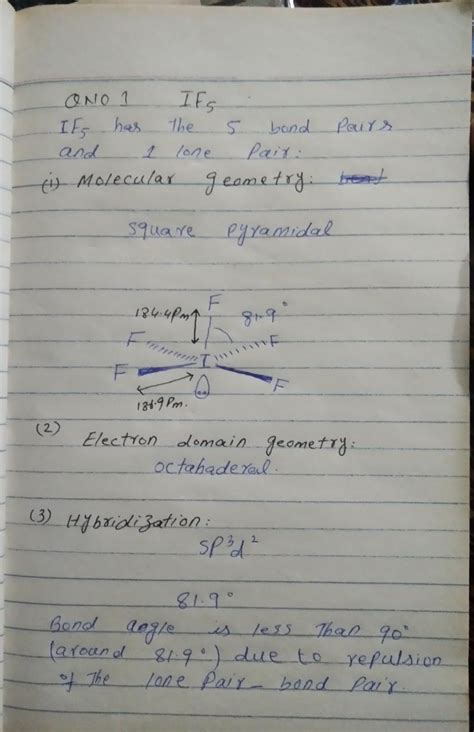 QNO 1 IF5
IF5 has The 5 bond Pairs
and 1 lone Pair:
(i) Molecular geometry:
square pyramidal
184.4Pm F 81.9°
F F
I
F F
186.9 Pm.
(2)
Electron domain geometry:
octahaderal.
(3) Hybridization:
SP³d²
81.9°
Bond angle is less Than 90°
(around 81.9°) due to repulsion
of The lone Pair_ bond Pair.